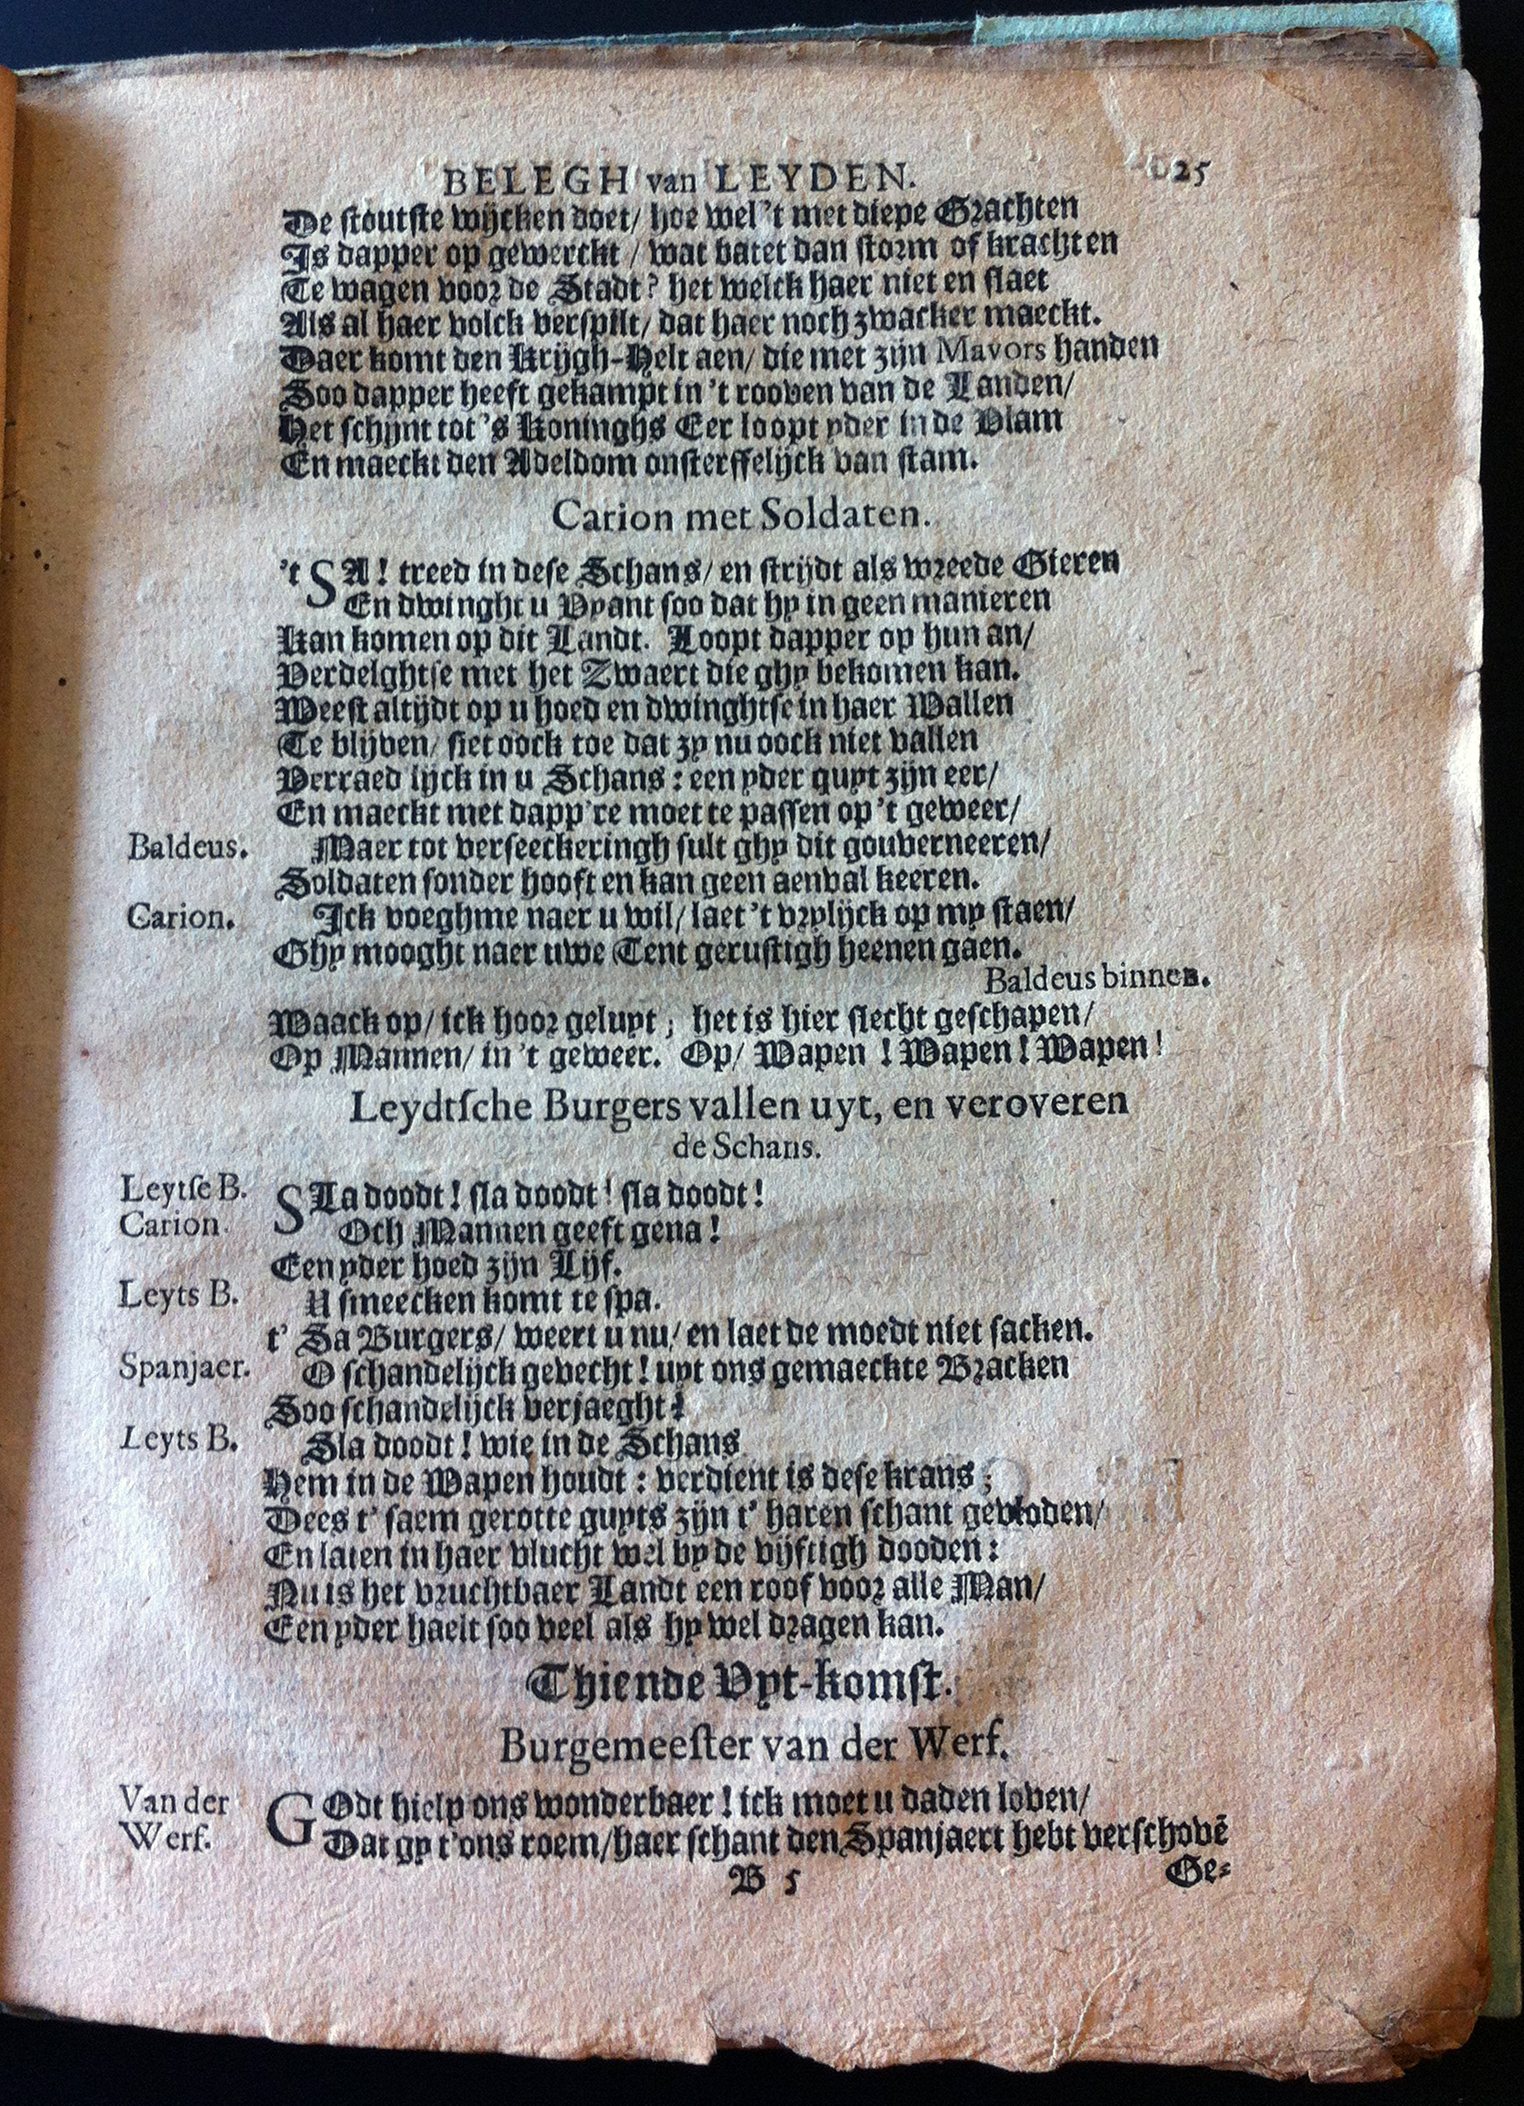 BELEGH van LEYDEN. 25
De stoutste wijcken doet/ hoe wel 't met diepe Grachten
Is dapper op gewerckt / wat batet dan storm of krachten
Te wagen voor de Stadt? het welck haer niet en slaet
Als al haer volck verspilt/ dat haer noch zwacker maeckt.
Daer komt den Krijgh-Helt aen/ die met zijn Mavors handen
Soo dapper heeft gekampt in 't rooven van de Landen/
Het schijnt tot 's Koninghs Eer loopt yder in de Vlam
En maeckt den Adeldom onsterffelijck van stam.
Carion met Soldaten.
'tSA! treed in dese Schans/ en strijdt als wreede Gieren
En dwinght u Vyant soo dat hy in geen manieren
Kan komen op dit Landt. Loopt dapper op hun an/
Verdelghtse met het Zwaert die ghy bekomen kan.
Weest altijdt op u hoed en dwinghtse in haer Wallen
Te blijven/ siet oock toe dat zy nu oock niet vallen
Verraed lijck in u Schans : een yder quyt zijn eer/
En maeckt met dapp're moet te passen op 't geweer/
Baldeus. Maer tot verseeckeringh sult ghy dit gouverneeren/
Soldaten sonder hooft en kan geen aenval keeren.
Carion. Ick voeghme naer u wil/ laet 't vrylijck op my staen/
Ghy mooght naer uwe Tent gerustigh heenen gaen.
Baldeus binnen.
Waack op/ ick hoor geluyt; het is hier slecht geschapen/
Op Mannen/ in 't geweer. Op/ Wapen ! Wapen ! Wapen !
Leydtsche Burgers vallen uyt, en veroveren
de Schans.
Leytse B. SLa doodt ! sla doodt ! sla doodt !
Carion. Och Mannen geeft gena !
Een yder hoed zijn Lijf.
Leyts B. U smeecken komt te spa.
t' Sa Burgers/ weert u nu/ en laet de moedt niet sacken.
Spanjaer. O schandelijck gevecht ! uyt ons gemaeckte Bracken
Soo schandelijck verjaeght !
Leyts B. Sla doodt ! wie in de Schans
Hem in de Wapen houdt : verdient is dese krans ;
Dees t' saem gerotte guyts zijn t' haren schant gevloden/
En laten in haer vlucht wel by de vijftigh dooden :
Nu is het vruchtbaer Landt een roof voor alle Man/
Een yder haelt soo veel als hy wel dragen kan.
Thiende Vyt-komst.
Burgemeester van der Werf.
Van der GOdt hielp ons wonderbaer ! ick moet u daden loven/
Werf. Dat gy t'ons roem/haer schant den Spanjaert hebt verschovē
B 5 Ge-